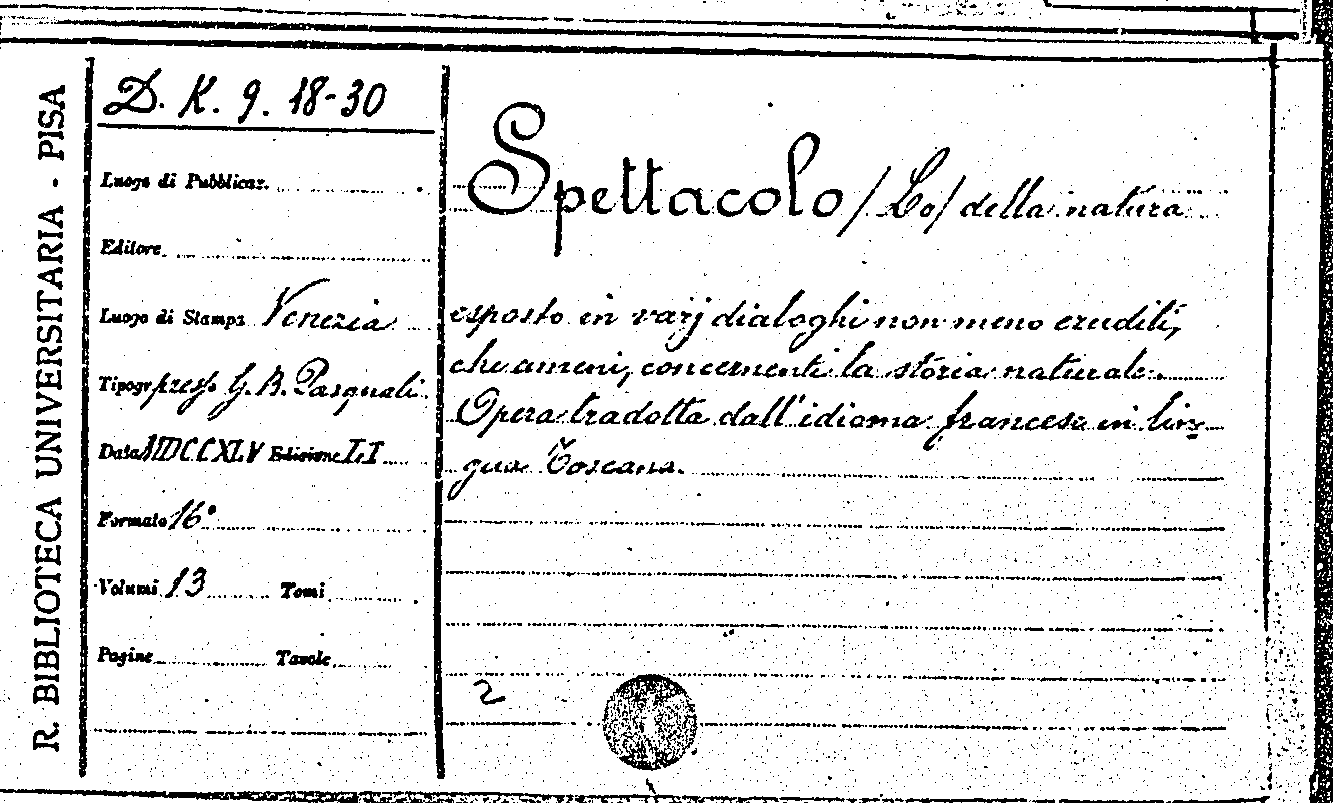 R. BIBLIOTECA UNIVERSITARIA - PISA
D. K. 9. 18-30
Luogo di Pubblicaz.
Editore
Luogo di Stampa Venezia
Tipogr. presso G. B. Pasquali
Data MDCCXLV Edizione II
Formato 16°
Volumi 13 Tomi
Pagine Tavole
Spettacolo /Lo/ della natura
esposto in varj dialoghi non meno eruditi,
che ameni, concernenti la storia naturale.
Opera tradotta dall'idioma francese in lin-
gua Toscana.
2